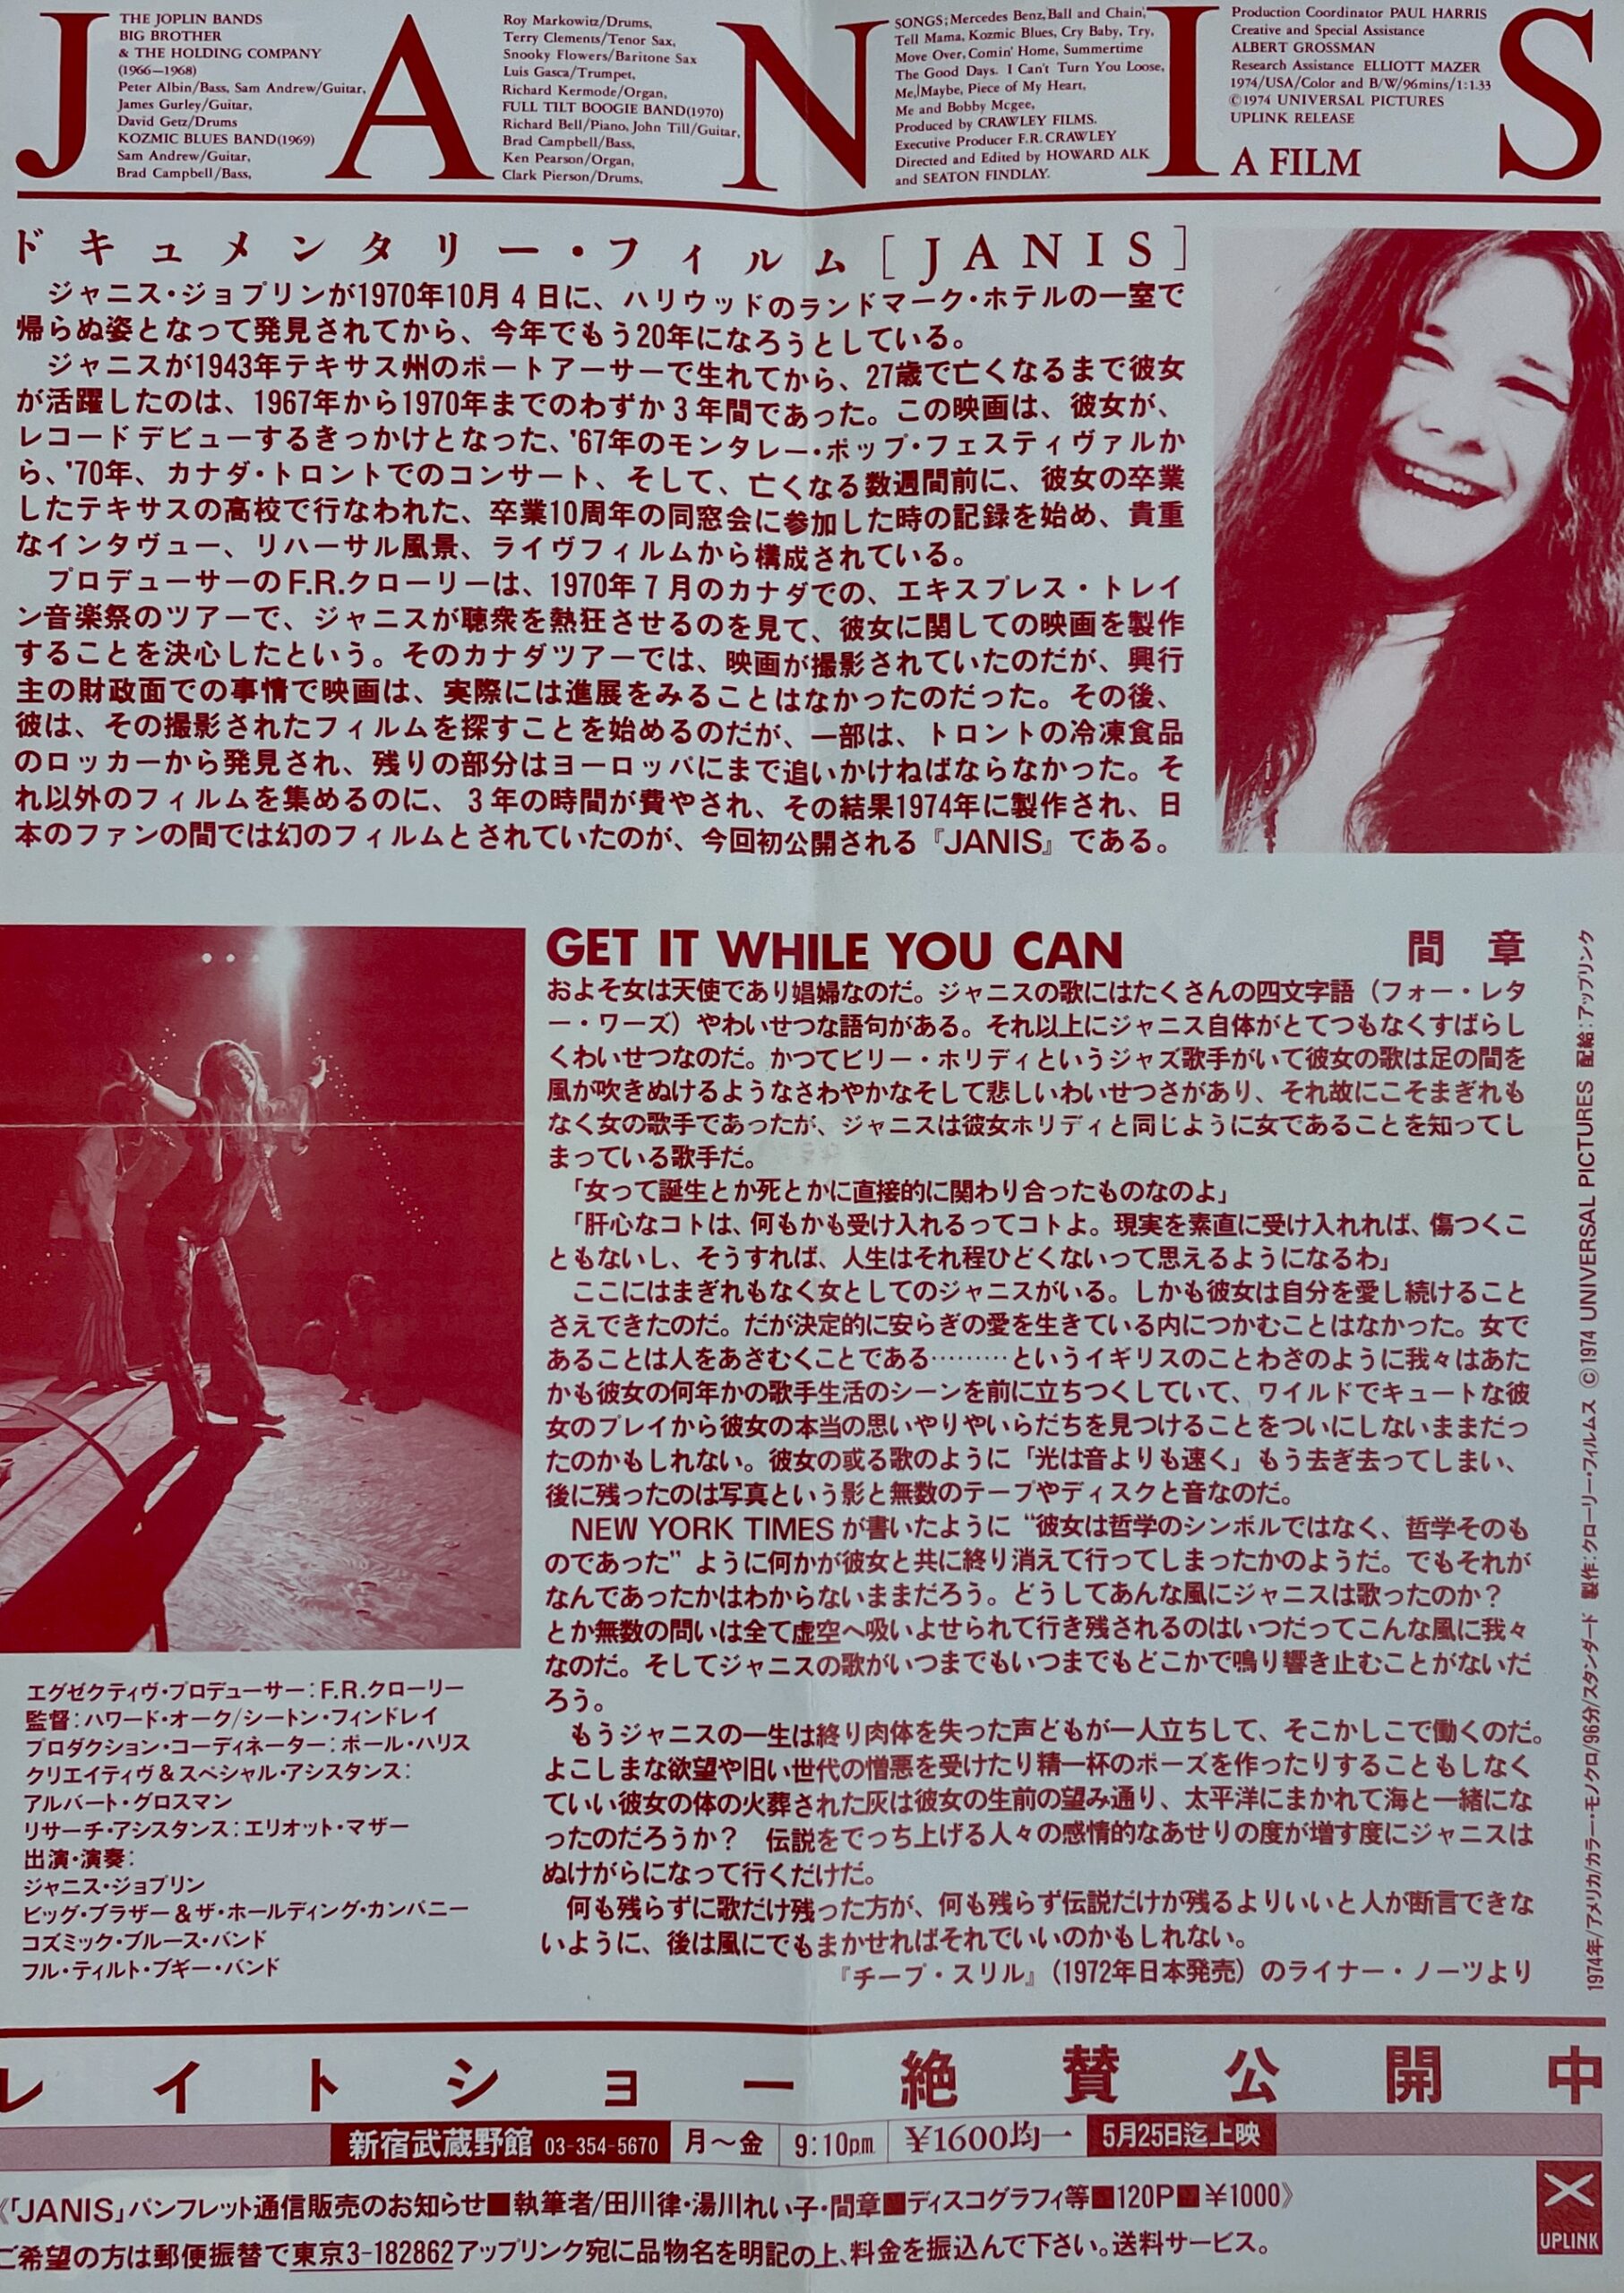 JANIS
THE JOPLIN BANDS
BIG BROTHER
& THE HOLDING COMPANY
(1966—1968)
Peter Albin/Bass, Sam Andrew/Guitar,
James Gurley/Guitar,
David Getz/Drums
KOZMIC BLUES BAND(1969)
Sam Andrew/Guitar,
Brad Campbell/Bass,
Roy Markowitz/Drums,
Terry Clements/Tenor Sax,
Snooky Flowers/Baritone Sax
Luis Gasca/Trumpet,
Richard Kermode/Organ,
FULL TILT BOOGIE BAND(1970)
Richard Bell/Piano, John Till/Guitar,
Brad Campbell/Bass,
Ken Pearson/Organ,
Clark Pierson/Drums,
SONGS;Mercedes Benz,Ball and Chain,
Tell Mama, Kozmic Blues, Cry Baby, Try,
Move Over, Comin' Home, Summertime
The Good Days. I Can't Turn You Loose,
Me,Maybe, Piece of My Heart,
Me and Bobby Mcgee,
Produced by CRAWLEY FILMS.
Executive Producer F.R. CRAWLEY
Directed and Edited by HOWARD ALK
and SEATON FINDLAY.
Production Coordinator PAUL HARRIS
Creative and Special Assistance
ALBERT GROSSMAN
Research Assistance ELLIOTT MAZER
1974/USA/Color and B/W/96mins/1:1.33
©1974 UNIVERSAL PICTURES
UPLINK RELEASE
A FILM
ドキュメンタリー・フィルム[JANIS]
ジャニス・ジョプリンが1970年10月4日に、ハリウッドのランドマーク・ホテルの一室で
帰らぬ姿となって発見されてから、今年でもう20年になろうとしている。
ジャニスが1943年テキサス州のポートアーサーで生れてから、27歳で亡くなるまで彼女
が活躍したのは、1967年から1970年までのわずか3年間であった。この映画は、彼女が、
レコードデビューするきっかけとなった、'67年のモンタレー・ポップ・フェスティヴァルか
ら、'70年、カナダ・トロントでのコンサート、そして、亡くなる数週間前に、彼女の卒業
したテキサスの高校で行なわれた、卒業10周年の同窓会に参加した時の記録を始め、貴重
なインタヴュー、リハーサル風景、ライヴフィルムから構成されている。
プロデューサーのF.R.クローリーは、1970年7月のカナダでの、エキスプレス・トレイ
ン音楽祭のツアーで、ジャニスが聴衆を熱狂させるのを見て、彼女に関しての映画を製作
することを決心したという。そのカナダツアーでは、映画が撮影されていたのだが、興行
主の財政面での事情で映画は、実際には進展をみることはなかったのだった。その後、
彼は、その撮影されたフィルムを探すことを始めるのだが、一部は、トロントの冷凍食品
のロッカーから発見され、残りの部分はヨーロッパにまで追いかけねばならなかった。そ
れ以外のフィルムを集めるのに、3年の時間が費やされ、その結果1974年に製作され、日
本のファンの間では幻のフィルムとされていたのが、今回初公開される『JANIS』である。
GET IT WHILE YOU CAN 間 章
およそ女は天使であり娼婦なのだ。ジャニスの歌にはたくさんの四文字語（フォー・レタ
ー・ワーズ）やわいせつな語句がある。それ以上にジャニス自体がとてつもなくすばらし
くわいせつなのだ。かつてビリー・ホリディというジャズ歌手がいて彼女の歌は足の間を
風が吹きぬけるようなさわやかなそして悲しいわいせつさがあり、それ故にこそまぎれも
なく女の歌手であったが、ジャニスは彼女ホリディと同じように女であることを知ってし
まっている歌手だ。
「女って誕生とか死とかに直接的に関わり合ったものなのよ」
「肝心なコトは、何もかも受け入れるってコトよ。現実を素直に受け入れれば、傷つくこ
ともないし、そうすれば、人生はそれ程ひどくないって思えるようになるわ」
ここにはまぎれもなく女としてのジャニスがいる。しかも彼女は自分を愛し続けること
さえできたのだ。だが決定的に安らぎの愛を生きている内につかむことはなかった。女で
あることは人をあざむくことである………というイギリスのことわざのように我々はあた
かも彼女の何年かの歌手生活のシーンを前に立ちつくしていて、ワイルドでキュートな彼
女のプレイから彼女の本当の思いやりやいらだちを見つけることをついにしないままだっ
たのかもしれない。彼女の或る歌のように「光は音よりも速く」もう去ぎ去ってしまい、
後に残ったのは写真という影と無数のテープやディスクと音なのだ。
NEW YORK TIMESが書いたように“彼女は哲学のシンボルではなく、哲学そのも
のであった”ように何かが彼女と共に終り消えて行ってしまったかのようだ。でもそれが
なんであったかはわからないままだろう。どうしてあんな風にジャニスは歌ったのか？
とか無数の問いは全て虚空へ吸いよせられて行き残されるのはいつだってこんな風に我々
なのだ。そしてジャニスの歌がいつまでもいつまでもどこかで鳴り響き止むことがないだ
ろう。
もうジャニスの一生は終り肉体を失った声どもが一人立ちして、そこかしこで働くのだ。
よこしまな欲望や旧い世代の憎悪を受けたり精一杯のポーズを作ったりすることもしなく
ていい彼女の体の火葬された灰は彼女の生前の望み通り、太平洋にまかれて海と一緒にな
ったのだろうか？ 伝説をでっち上げる人々の感情的なあせりの度が増す度にジャニスは
ぬけがらになって行くだけだ。
何も残らずに歌だけ残った方が、何も残らず伝説だけが残るよりいいと人が断言できな
いように、後は風にでもまかせればそれでいいのかもしれない。
『チープ・スリル』（1972年日本発売）のライナー・ノーツより
1974年/アメリカ/カラー・モノクロ/96分/スタンダード 製作:クローリー・フィルムス ©1974 UNIVERSAL PICTURES 配給:アップリンク
エグゼクティヴ・プロデューサー:F.R.クローリー
監督:ハワード・オーク/シートン・フィンドレイ
プロダクション・コーディネーター:ポール・ハリス
クリエイティヴ&スペシャル・アシスタンス:
アルバート・グロスマン
リサーチ・アシスタンス:エリオット・マザー
出演・演奏:
ジャニス・ジョプリン
ビッグ・ブラザー&ザ・ホールディング・カンパニー
コズミック・ブルース・バンド
フル・ティルト・ブギー・バンド
レイトショー絶賛公開中
新宿武蔵野館 03-354-5670 月～金 9:10pm ¥1600均一 5月25日迄上映
《「JANIS」パンフレット通信販売のお知らせ■執筆者/田川律・湯川れい子・間章■ディスコグラフィ等■120P■¥1000》
ご希望の方は郵便振替で東京3-182862アップリンク宛に品物名を明記の上、料金を振込んで下さい。送料サービス。
UPLINK